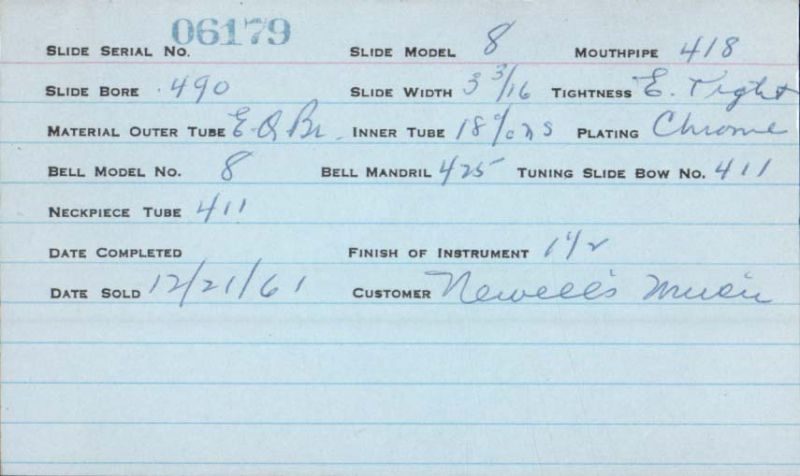 SLIDE SERIAL NO. 06179 SLIDE MODEL 8 MOUTHPIPE 418
SLIDE BORE .490 SLIDE WIDTH 3 3/16 TIGHTNESS E. Tight
MATERIAL OUTER TUBE INNER TUBE 18% NS PLATING Chrome
BELL MODEL NO. 8 BELL MANDRIL 425 TUNING SLIDE BOW NO. 411
NECKPIECE TUBE 411
DATE COMPLETED FINISH OF INSTRUMENT 1 1/2
DATE SOLD 12/21/61 CUSTOMER Newell's Music